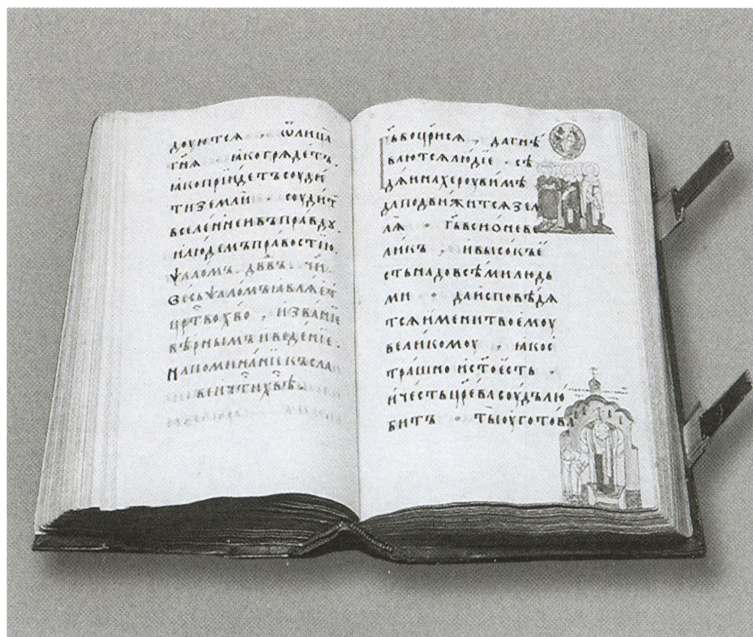 дꙋютсѧ · ѿлица
гнѧ ꙗкогрѧдетъ ·
ꙗкопрїидетъсоуди
тиземли · соудитъ
вселеннѣивъправдꙋ
илюдемъправостїю ·
ѱаломъ · двдъ · чи
сесьѱаломъꙗвлѧет
црⷭ҇твохв҃о , изванїе
вѣрнымъиведенїе ·
напоминанїекъсла
гь҃воцр҃исѧ , дагнѣ
ваютсѧлюдїе · сѣ
дѧинахероувимѣ
даподвижитсѧзем
лѧ · гь҃всиѡневе
ликъ , ивысокъе
стьнадовсѣмилюдь
ми · даисповѣдѧ
тсѧимениꙗтвоемоу
великомоу , ꙗкос
трашноистоесть ·
ичестьцр҃евасоудълю
битъ · тыоуготова